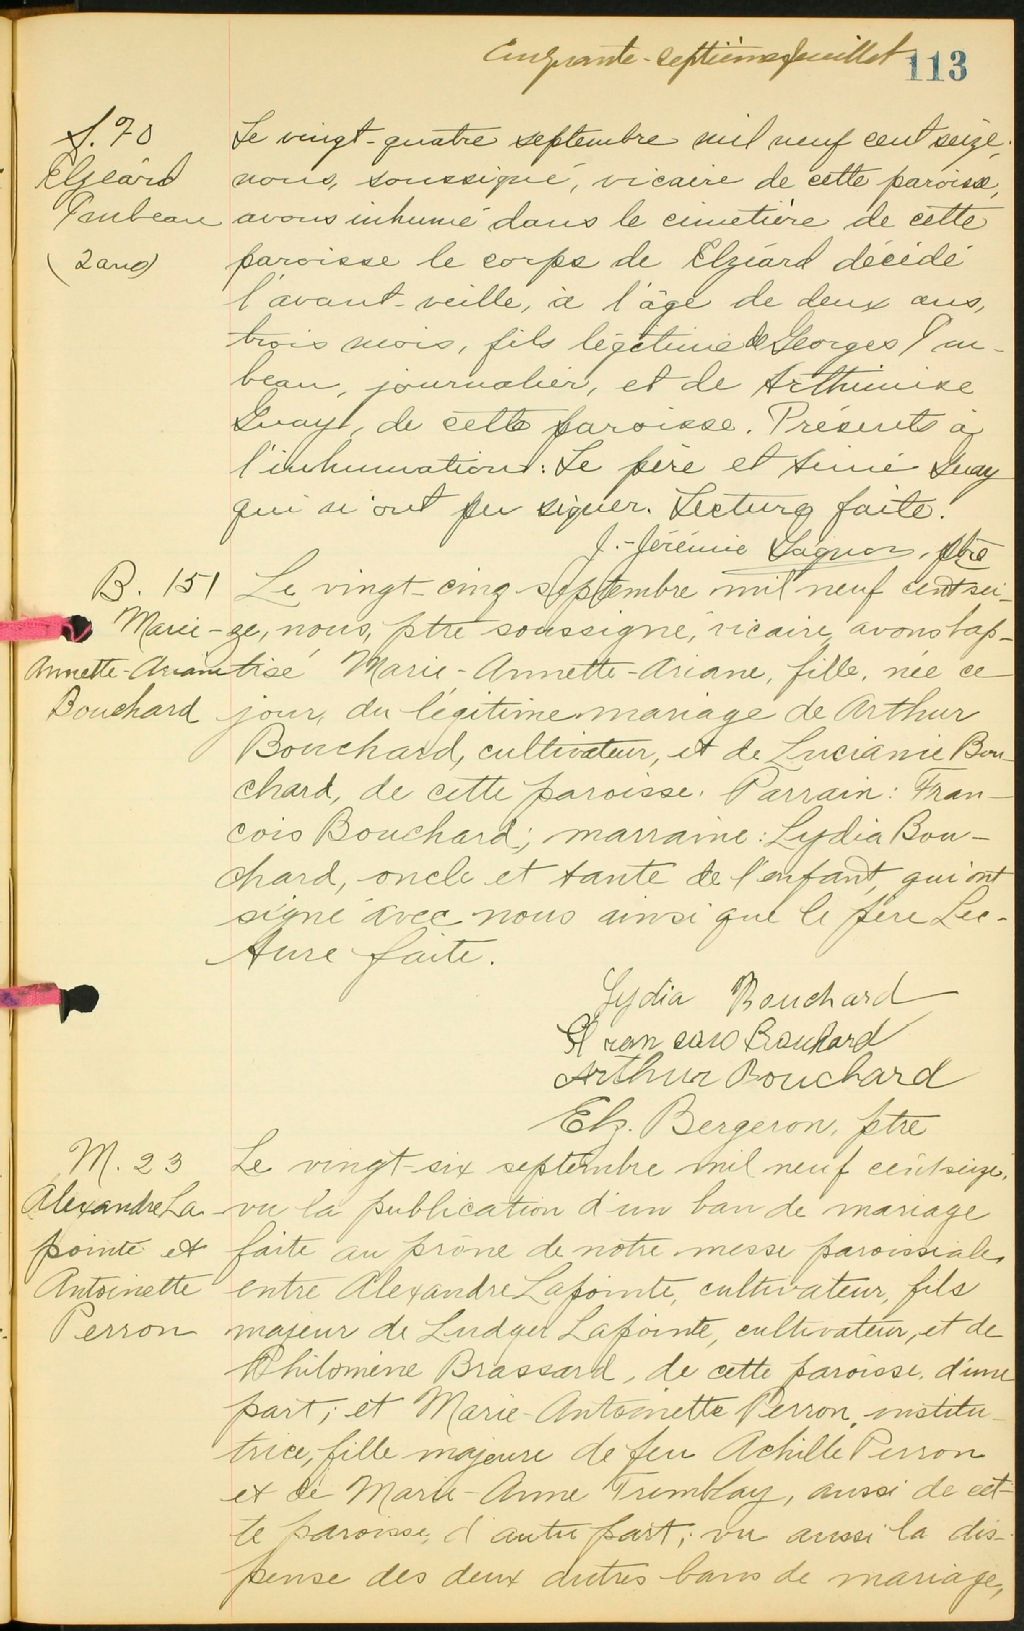 Cinquante-septième feuillet 113
S. 70
Elzéard
Imbeau
(2 ans)
Le vingt-quatre septembre mil neuf cent seize,
nous, soussigné, vicaire de cette paroisse,
avons inhumé dans le cimetière de cette
paroisse le corps de Elzéard décédé
l'avant-veille, à l'âge de deux ans,
trois mois, fils légitime de Georges Im-
beau, journalier, et de Arthémise
Guay, de cette paroisse. Présents à
l'inhumation: Le père et Aimé Guay
qui n'ont pu signer. Lecture faite.
J.-Jérémie Gagnon, ptre
B. 151
Marie-
Annette-Ariane
Bouchard
Le vingt-cinq septembre mil neuf cent sei-
ze, nous, ptre soussigné, vicaire, avons bap-
tisé Marie-Annette-Ariane, fille, née ce
jour, du légitime mariage de Arthur
Bouchard, cultivateur, et de Lucianie Bou-
chard, de cette paroisse. Parrain: Fran-
cois Bouchard; marraine: Lydia Bou-
chard, oncle et tante de l'enfant, qui ont
signé avec nous ainsi que le père Lec-
ture faite.
Lydia Bouchard
Bouchard
Arthur Bouchard
Elz. Bergeron, ptre
M. 23
Alexandre La-
pointe et
Antoinette
Perron
Le vingt-six septembre mil neuf cent seize,
vu la publication d'un ban de mariage
faite au prône de notre messe paroissiale,
entre Alexandre Lapointe, cultivateur, fils
majeur de Ludger Lapointe, cultivateur, et de
Philomène Brassard, de cette paroisse, d'une
part; et Marie-Antoinette Perron, institu-
trice, fille majeure de feu Achille Perron
et de Marie-Anne Tremblay, aussi de cet-
te paroisse, d'autre part; vu aussi la dis-
pense des deux autres bans de mariage,